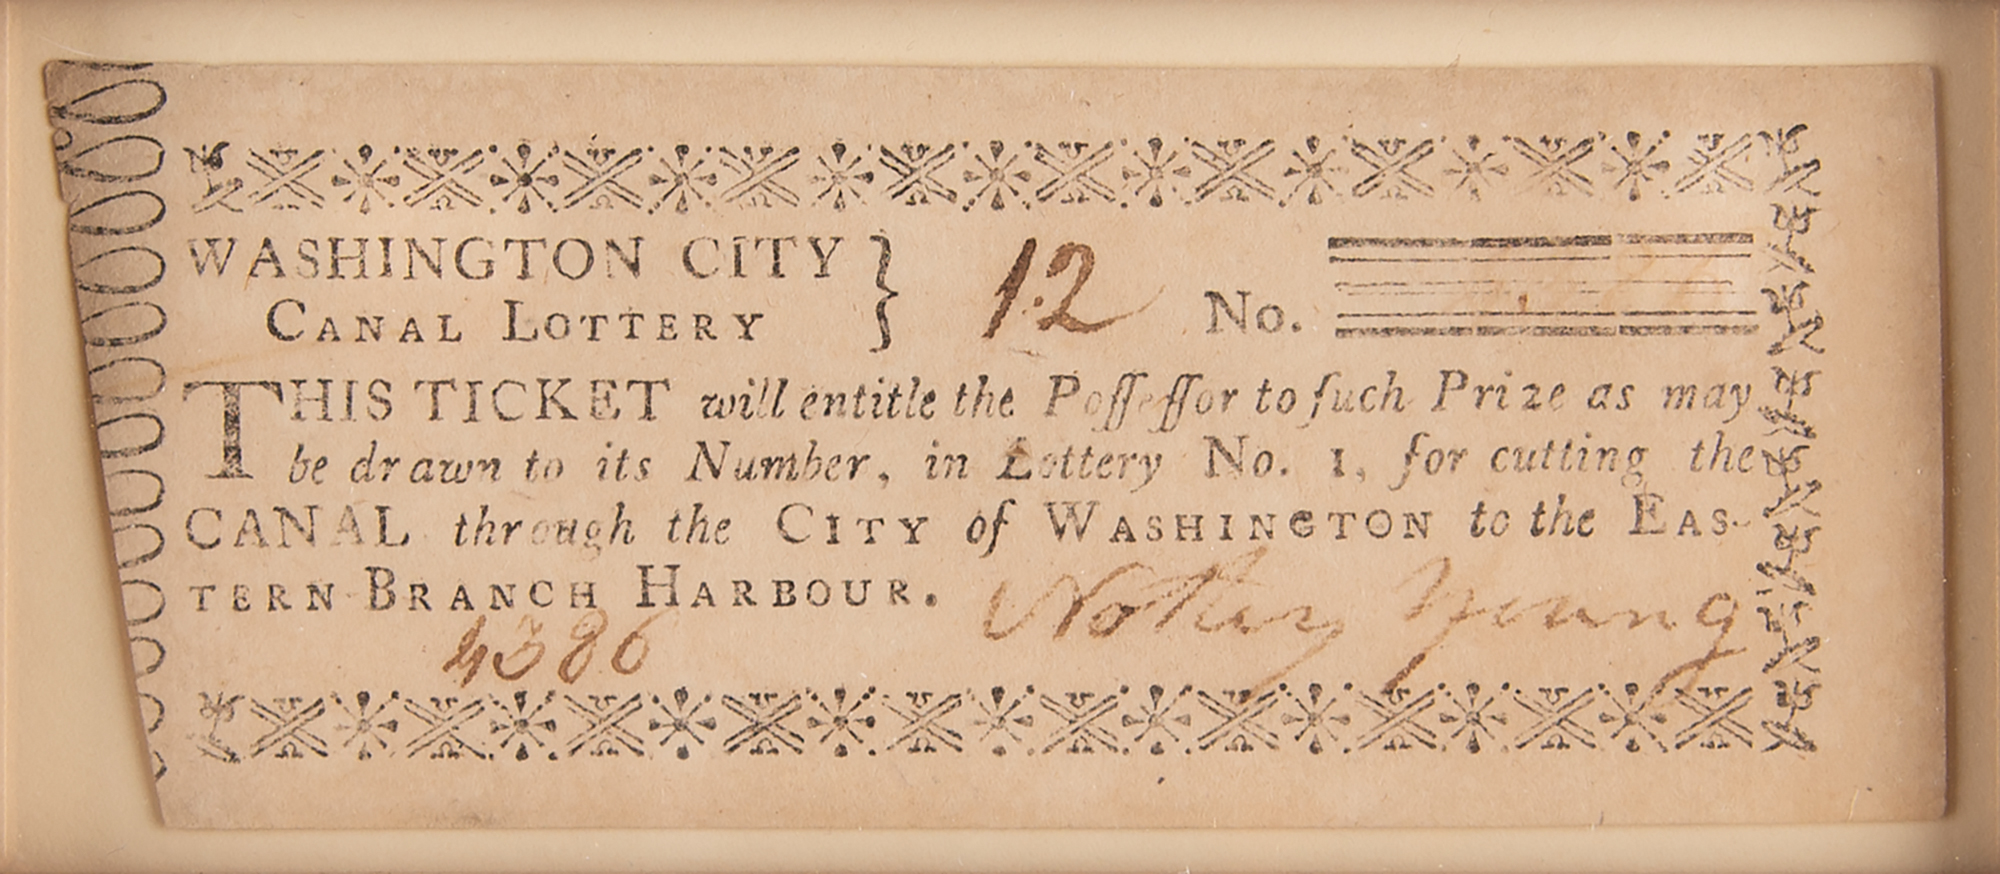 WASHINGTON CITY
CANAL LOTTERY } 12 No.
THIS TICKET will entitle the Poſſeſſor to ſuch Prize as may
be drawn to its Number, in Lottery No. 1, for cutting the
CANAL through the CITY of WASHINGTON to the EAS-
TERN BRANCH HARBOUR.
Notley Young
4386